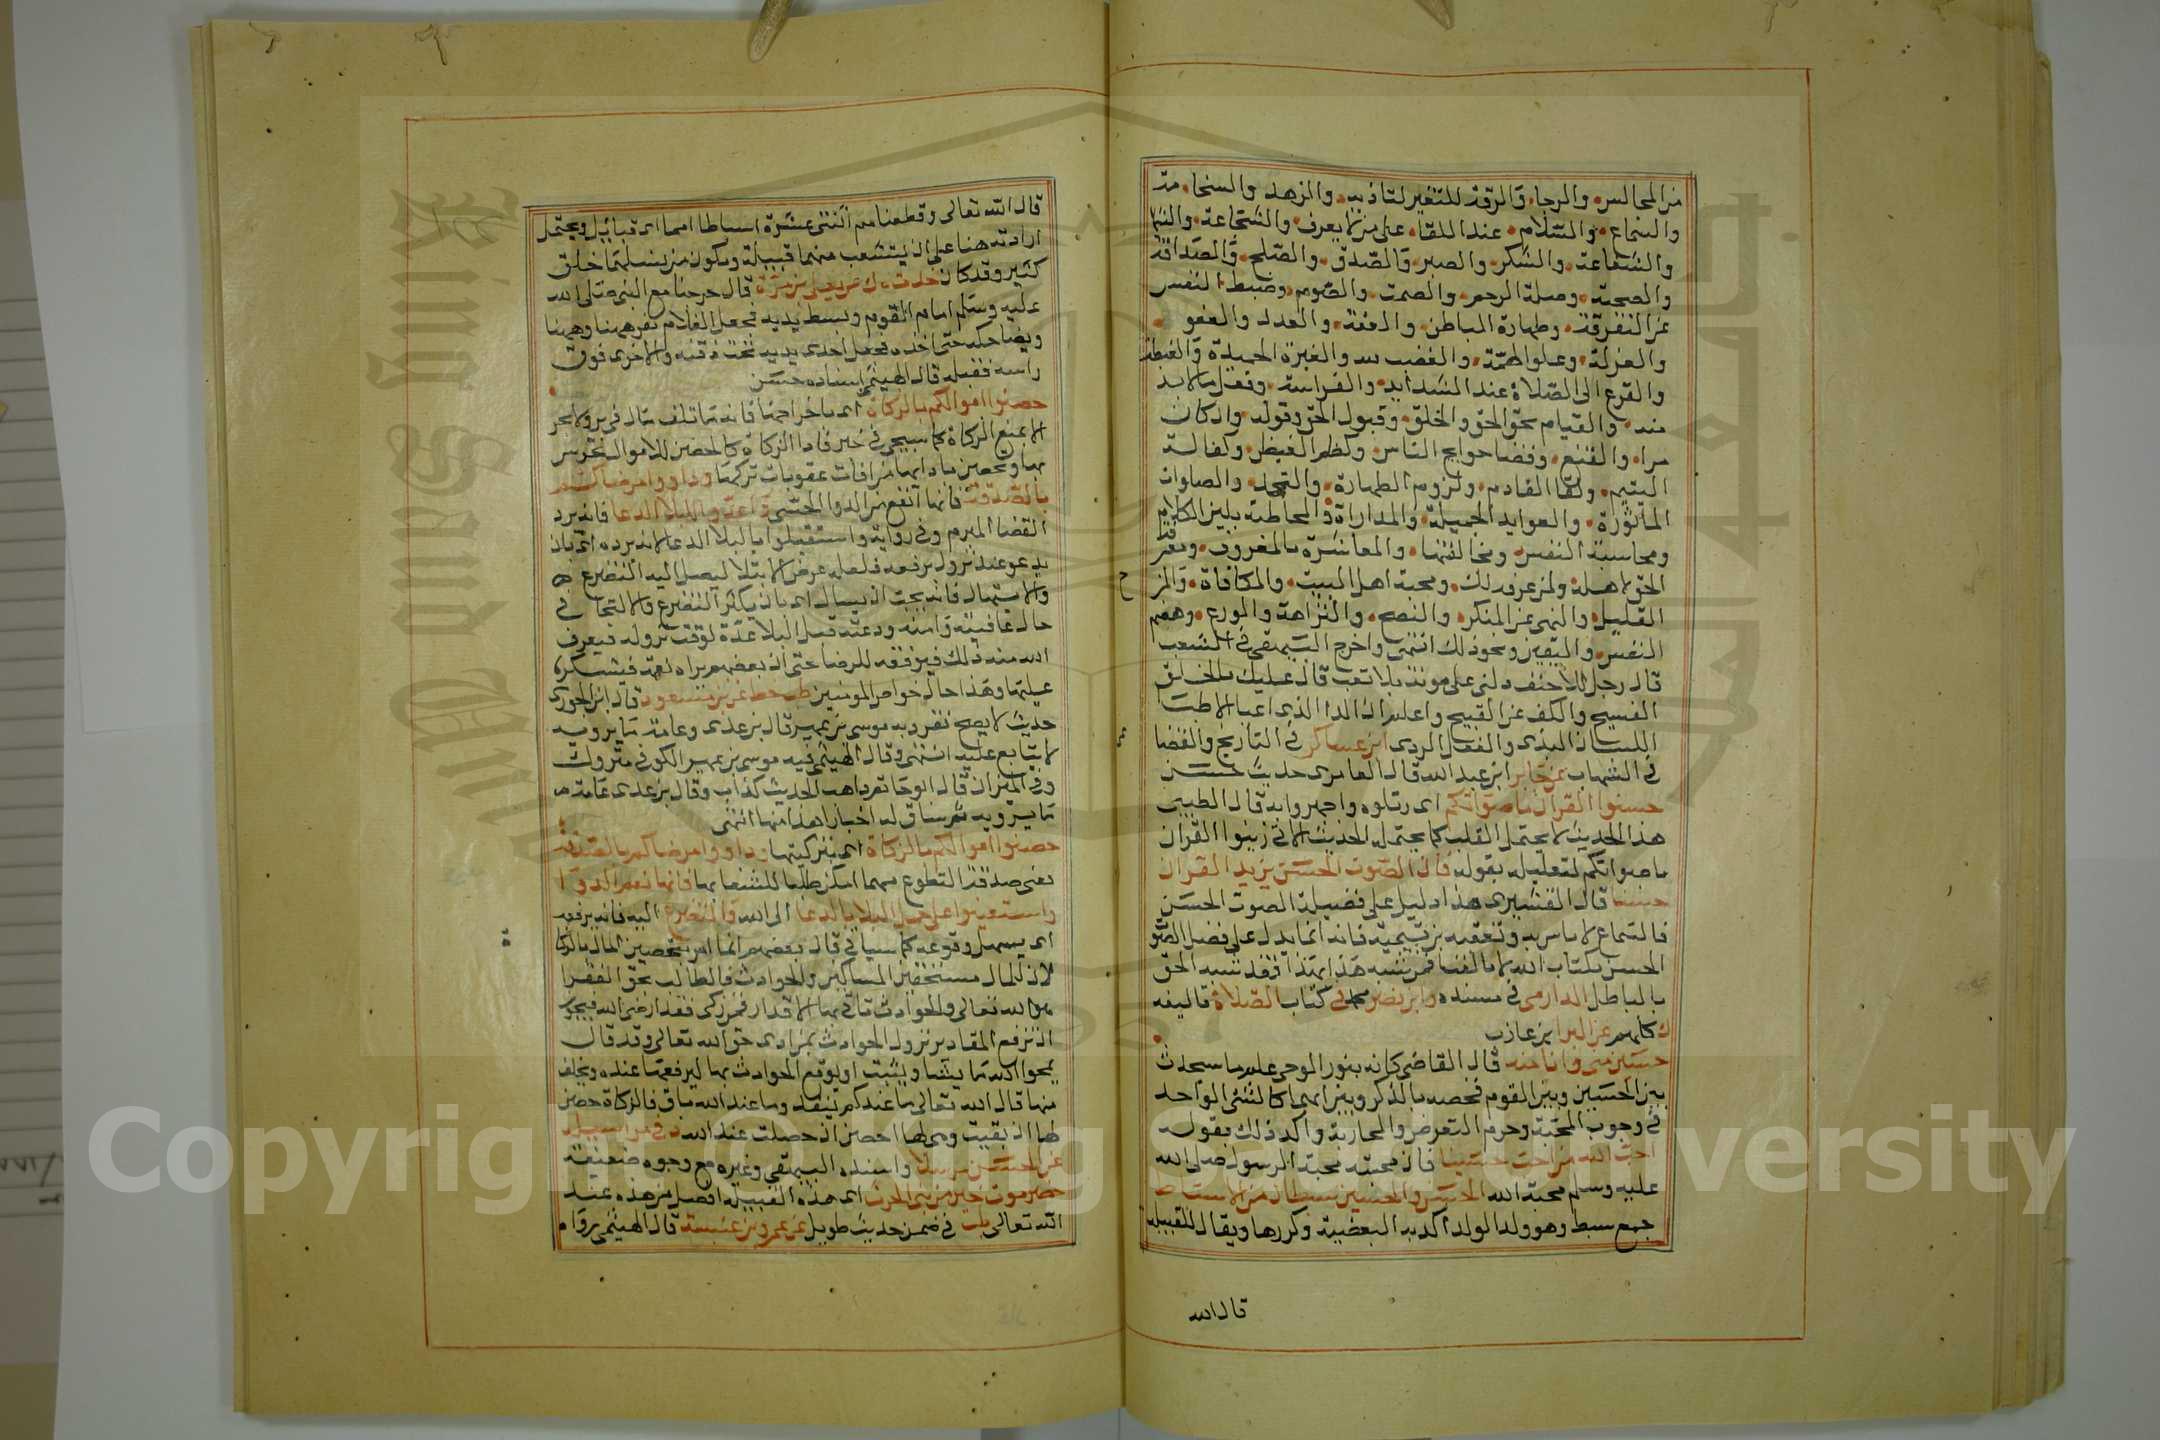 من المجالس والرجا والرقة للتغير لتاذيه والزهد والسخا مد
والسماع والسلام عند اللقا على من لا يعرف والشجاعة والشها
والشفاعة والشكر والصبر والصدق والصلح والصداقة
والصحبة وصلة الرحم والصمت والصوم وضبط النفس
عن التفرقة وطهارة الباطن والعفة والعدل والعفو
والعزلة وعلو الهمة والغضب لله والغيرة الحميدة والغبطة
والفزع الى الصلاة عند الشدايد والفراسة وفعل ما لا بد
منه والقيام بحق الحق والخلق وقبول الحق وقوله وان كان
مرا والقنع وقضا حوايج الناس وكظم الغيظ وكفالة
اليتيم ولقا القادم ولزوم الطهارة والتهجد والصلوات
الماثورة والعوايد الجميلة والمداراة والمخاطبة بلين الكلام
ومحاسبة النفس ومخالفتها والمعاشرة بالمعروف ومعرفة
الحق لاهله ولمن عرفه لك ومحبة اهل البيت والمكافاة والمز
القليل والنهي عن المنكر والنصح والنزاهة والورع وهضم
النفس واليقين ونحو ذلك انتهى واخرج البيهقي في الشعب
قال رجل للاحنف دلني على مونة بلا تعب قال عليك بالخلق
الفسيح والكف عن القبيح واعلم ان الدا الذي اعيا الاطبا
اللسان البذي والفعل الردي ابن عساكر في التاريخ والقضا
في الشهاب عن جابر ابن عبد الله قال العامري حديث حسن
حسنوا القران باصواتكم اي رتلوه واجهروا به قال الطيبي
هذا الحديث لا يحتمل القلب كما يحتمله الحديث الاتي زينوا القران
باصواتكم لتعليله بقوله فان الصوت الحسن يزيد القران
حسنا قال القشيري هذا دليل على فضيلة الصوت الحسن
فالسماع لا باس به وتعقبه بن تيمية فانه انما يدل على فضل الصو
الحسن بكتاب الله لا بالغنا فمن شبه هذا بهذا فقد شبه الحق
بالباطل الدارمي في مسنده وابن نصر محمد في كتاب الصلاة تاليفه
ك كلهم عن البرا بن عازب
حسين مني وانا منه قال القاضي كانه بنور الوحي علم ما سيحدث
بين الحسين وبين القوم فخصه بالذكر وبين انهما كالشئ الواحد
في وجوب المحبة وحرم التعرض والمحاربة واكد ذلك بقوله
احب الله من احب حسينا فان محبته محبة الرسول صلى الله
عليه وسلم محبة الله الحسن والحسين سبطان من الاسباط
جمع سبط وهو ولد الولد اكد به البعضية وكررها ويقال للقبيلة
قال الله
قال الله تعالى وقطعناهم اثنتى عشرة اسباطا امما اي قبايل ويحتمل
ارادته هنا على انه يتشعب منهما قبيلة ويكون من نسلهما خلق
كثير وقد كان خد ت ه ك عن يعلى بن مرة قال خرجنا مع النبي صلى الله
عليه وسلم امام القوم وبسط يديه فجعل الغلام يفر ههنا وههنا
ويضاحكه حتى اخذه فجعل احدى يديه تحت ذقنه والاخرى فوق
راسه فقبله قال الهيثمي اسناده حسن
حصنوا اموالكم بالزكاة اي باخراجها فانه ما تلف مال في بر ولا بحر
الا بمنع الزكاة كما سيجي في خبر فادا الزكاة كالحصن للاموال تحرس
بها وتحصن بادايها من افات عقوبات تركها وداووا مرضاكم
بالصدقة فانها انفع من الدوا الحسي واعدوا للبلا الدعا فانه يرد
القضا المبرم وفي رواية واستقبلوا بالبلا الدعا لانه يرده اي بان
يدعو عند نزوله برفعه فلعله عرض الابتلا ليصل اليه التضرع
والابتهال فانه يحب ان يسال اي بان يكثر التضرع والالتجا في
حال عافيته وامنه ودعته قبل البلا عدة لوقت نزوله فيعرف
الله منه ذلك فيوفقه للرضا حتى ان بعضهم يراه نعمة فيشكره
عليها وهذا حال خواص المومنين طب حل خط عن بن مسعود قال ابن الجوزي
حديث لا يصح تفرد به موسى بن عمير قال بن عدي وعامة ما يرويه
لا يتابع عليه انتهى وقال الهيثمي فيه موسى بن عمير الكوفي متروك
وفي الميزان قال ابو حاتم ذاهب الحديث كذاب وقال بن عدي عامة
ما يرويه ثم ساق له اخبارا هذا منها انتهى
حصنوا اموالكم بالزكاة اي بتزكيتها وداووا مرضاكم بالصدقة
يعني صدقة التطوع مهما امكن طلبا للشفا بها فانها نعم الدوا
واستعينوا على حمل البلا بالدعا الى الله والتضرع اليه فانه يرفعه
اي يسهل وقوعه كما سياتي قال بعضهم انما امر بتحصين المال بالزكا
لان للمال مستحقين المساكين والحوادث فالطالب بحق الفقرا
هو الله تعالى والحوادث تاتي بها الاقدار فمن زكى فقد ارضى الله فيجوز
ان ترفع المقادير نزول الحوادث بمن ادى حق الله تعالى وقد قال
يمحوا الله ما يشا ويثبت او توقع الحوادث بها ليرفعها عنده ويخلف
منها قال الله تعالى ما عندكم ينفد وما عند الله باق فالزكاة حصن
لها ان بقيت وهي لها احصن ان حصلت عند الله د في مراسيله
عن الحسن مرسلا واسنده البيهقي وغيره من وجوه ضعيفة
حضرموت خير من بني الحرث اي هذه القبيلة افضل من هذه عند
الله تعالى طب في ضمن حديث طويل عن عمرو بن عبسة قال الهيثمي رواه
Copyright © King Saud University
King Saud University
1957